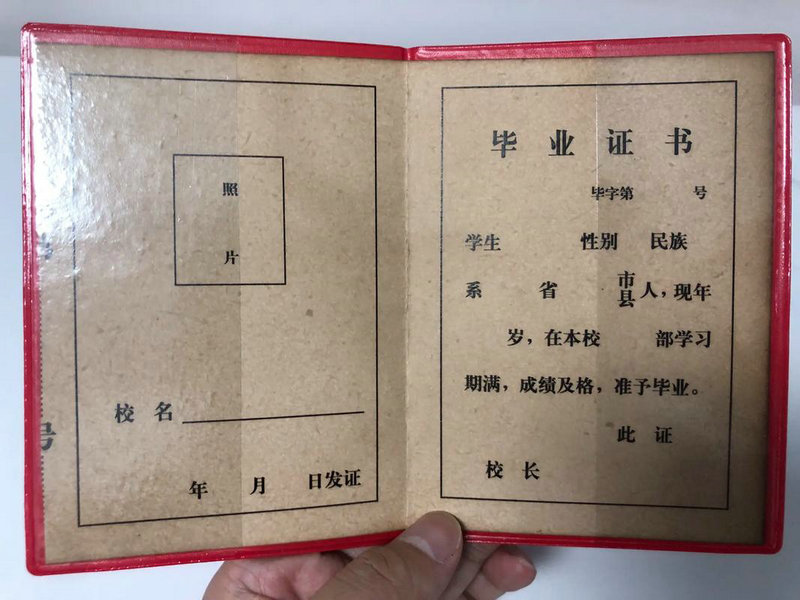 照
片
校 名
年 月 日发证
号
毕 业 证 书
毕字第 号
学生 性别 民族
系 省 市县人，现年
岁，在本校 部学习
期满，成绩及格，准予毕业。
此 证
校 长